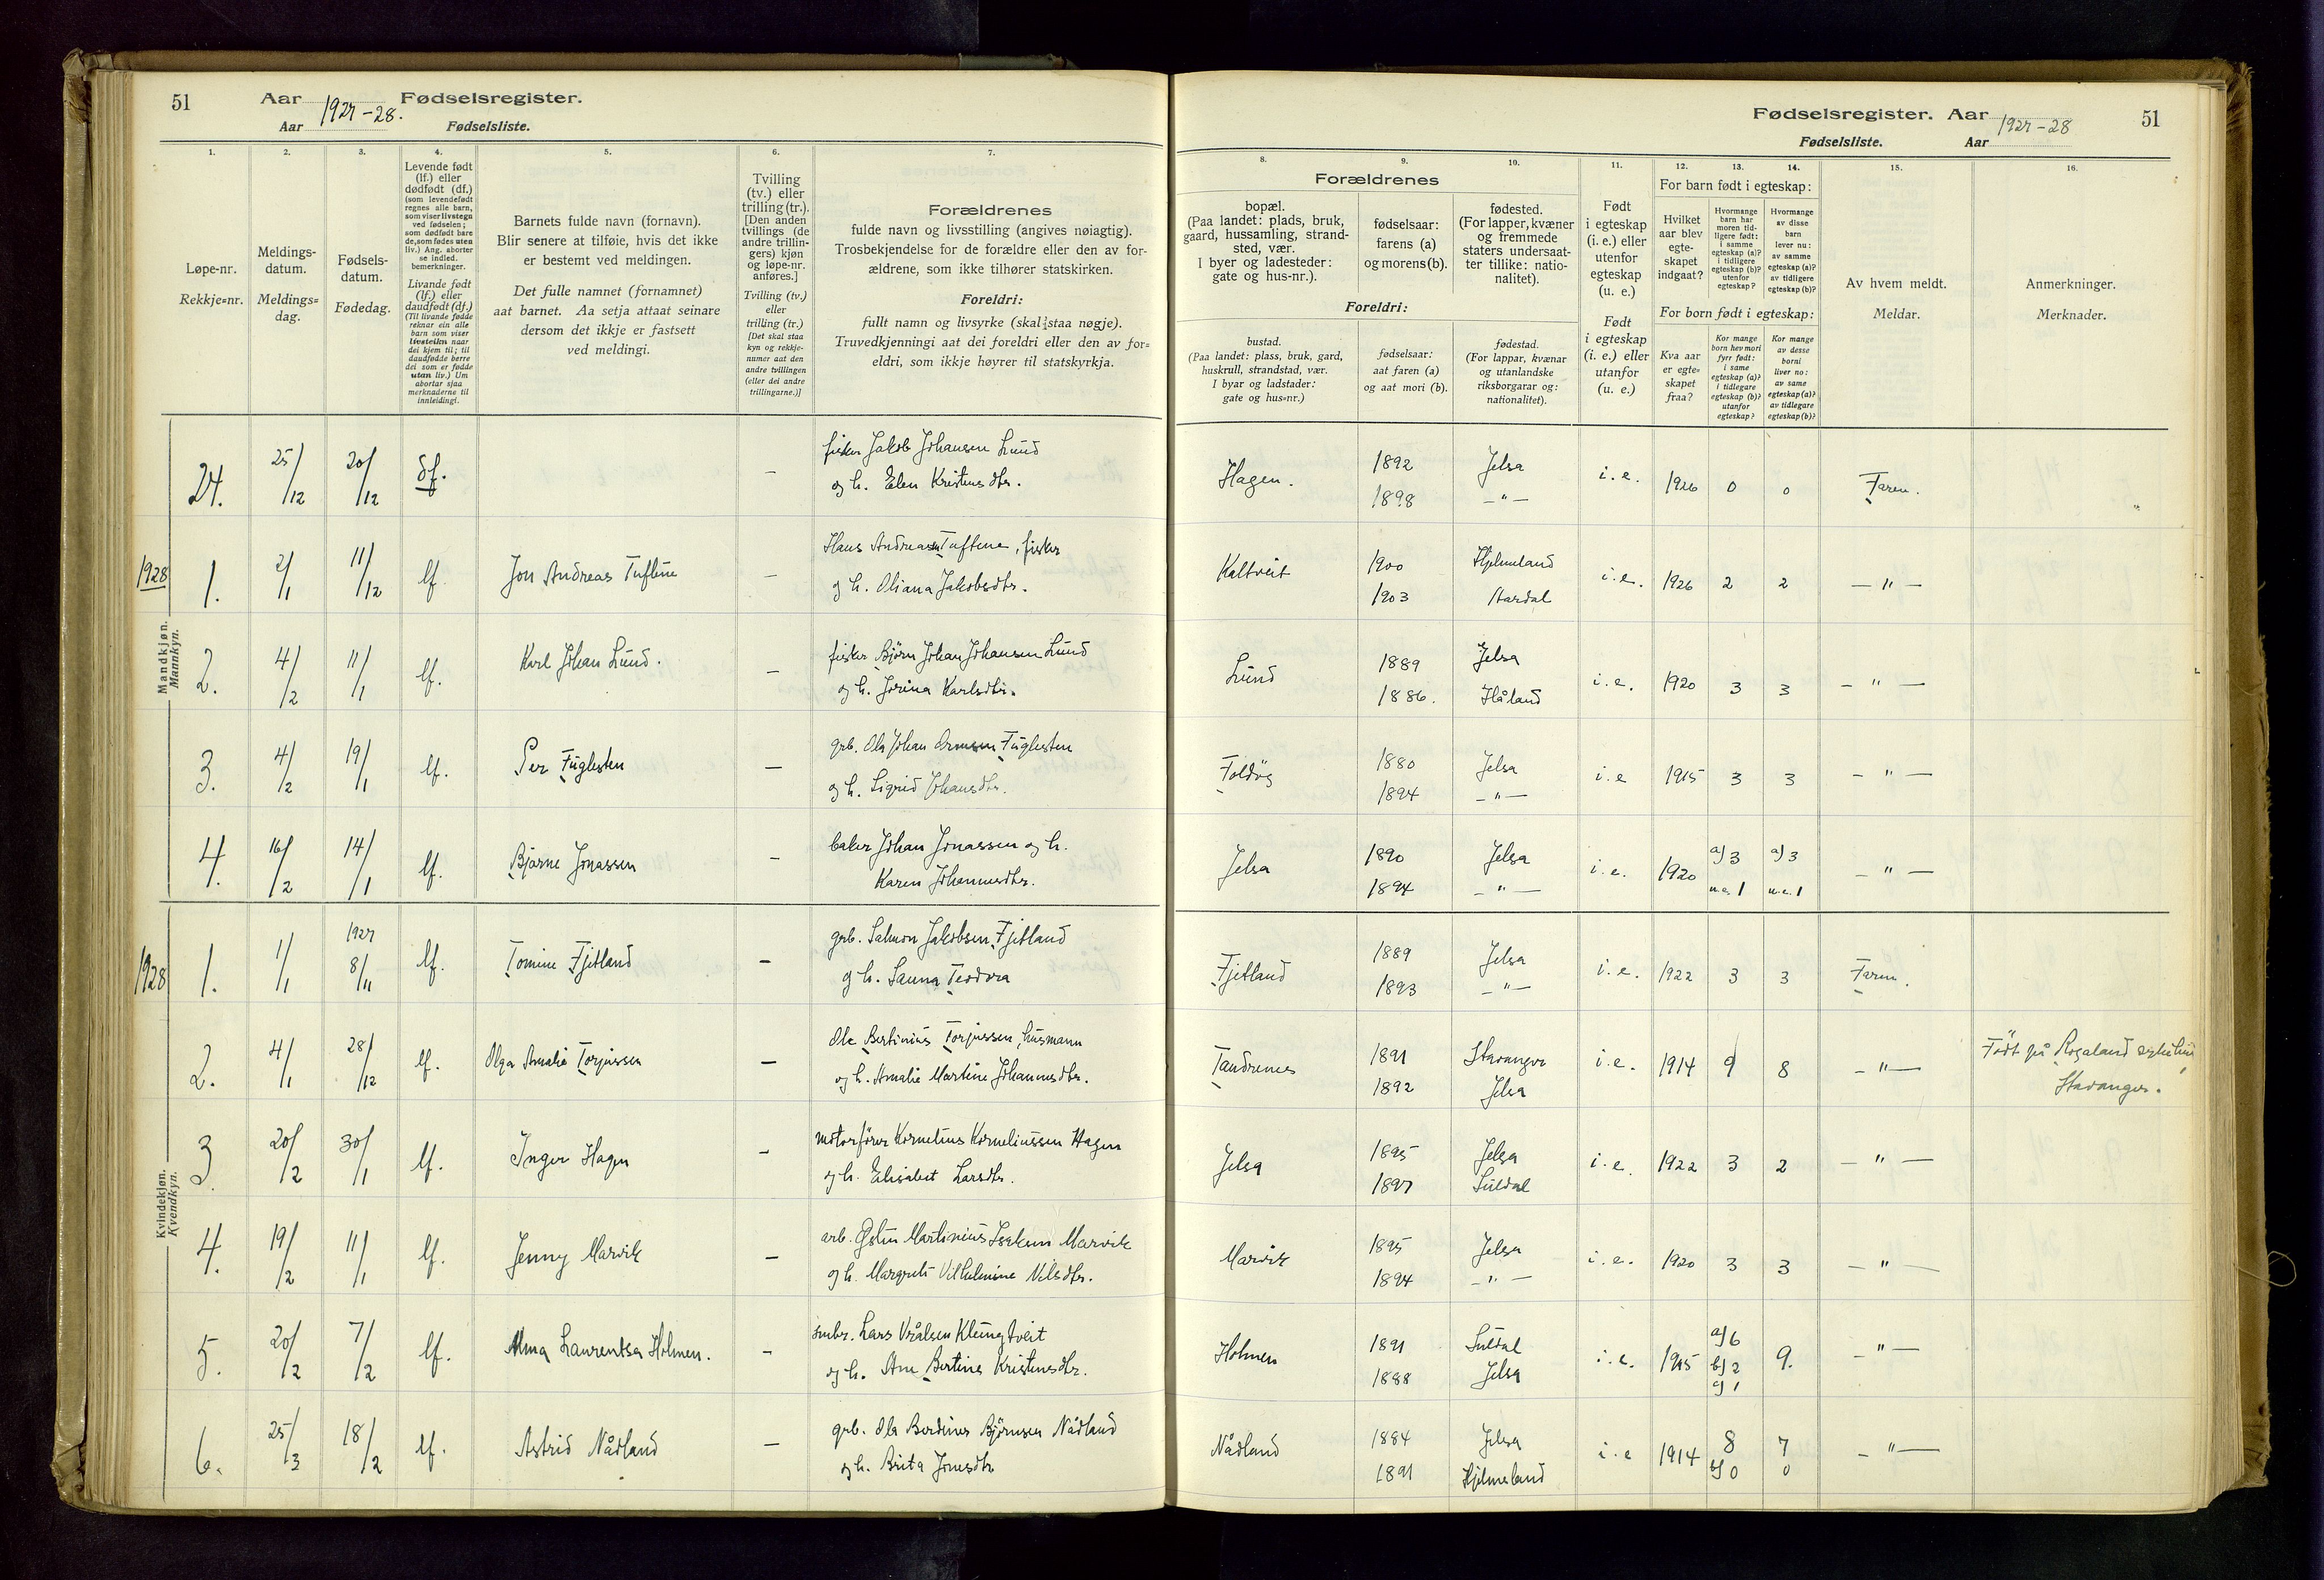 51 Aar 1927-28. Fødselsregister.
Aar Fødselsliste.
1. 2. 3. 4. 5. 6. 7.
Løpe-nr.
Rekkje=nr.
Meldings-
datum.
Meldings=
dag.
Fødsels-
datum.
Fødedag.
Levende født
(lf.) eller
dødfødt (df.)
(som levendefødt
regnes alle barn,
som viser livstegn
ved fødselen;
som dødfødt bare
de, som fødes uten
liv.) Ang. aborter
se indled.
bemerkninger.
Livande født
(lf.) eller
daudfødt (df.)
(Til livande fødde
reknar ein alle
barn som viser
livsteikn naar
dei kjem til; til
daudfødde berre
dei som er fødde
utan liv.) Um
abortar sjaa
merknaderne til
innleidingi.
Barnets fulde navn (fornavn).
Blir senere at tilføie, hvis det ikke
er bestemt ved meldingen.
Det fulle namnet (fornamnet)
aat barnet. Aa setja attaat seinare
dersom det ikkje er fastsett
ved meldingi.
Tvilling
(tv.) eller
trilling (tr.).
[Den anden
tvillings (de
andre trillin-
gers) kjøn
og løpe-nr.
anføres.]
Tvilling (tv.)
eller
trilling (tr.)
[Det skal staa
kyn og rekkje-
numer aat den
andre tvillingen
(eller dei andre
trillingarne.)]
Forældrenes
fulde navn og livsstilling (angives nøiagtig).
Trosbekjendelse for de forældre eller den av for-
ældrene, som ikke tilhører statskirken.
Foreldri:
fullt namn og livsyrke (skal staa nøgje).
Truvedkjenningi aat dei foreldri eller den av for=
eldri, som ikkje høyrer til statskyrkja.
24. 25/12 20/12 df. — fisker Jakob Johansen Lund
og h. Elen Kristensdtr.
1928
1. 2/1 11/12 lf. Jon Andreas Tuftene — Hans Andreasen Tuftene, fisker
og h. Oliana Jakobsdtr.
Mandkjøn.
Mannkyn.
2. 4/2 11/1 lf. Karl Johan Lund. — fisker Bjørn Johan Johansen Lund
og h. Jorina Karlsdtr.
3. 4/2 19/1 lf. Per Fuglesten — grb. Ola Johan Ormsen Fuglesten
og h. Sigrid Johansdtr.
4. 16/2 14/1 lf. Bjarne Jonassen — baker Johan Jonassen og h.
Karen Johannesdtr.
1928
1. 1/1 1927 8/11 lf. Tomine Fjetland — grb. Salmon Jakobsen Fjetland
og h. Sanna Teodora
2. 4/1 28/12 lf. Olga Amalie Torjussen — Ole Bertinius Torjussen, husmann
og h. Amalie Martine Johannesdtr.
3. 20/2 30/1 lf. Inger Hagen — motorfører Kornelius Korneliussen Hagen
og h. Elisabet Larsdtr.
Kvindekjøn.
Kvendkyn.
4. 19/2 11/1 lf. Jenny Marvik — arb. Martinius Marvik
og h. Margrete Vilhelmine Nilsdtr.
5. 20/2 7/2 lf. Alma Laurentsa Holmen. — smbr. Lars Vrålsen Klungtveit
og h. Ane Bertine Kristensdtr.
6. 25/3 18/2 lf. Astrid Nådland — grb. Ola Berdines Bjørnsen Nådland
og h. Brita Jonsdtr
Fødselsregister. Aar 1927-28 51
Fødselsliste. Aar
8. 9. 10. 11. 12. 13. 14. 15. 16.
Forældrenes
bopæl.
(Paa landet: plads, bruk,
gaard, hussamling, strand-
sted, vær.
I byer og ladesteder:
gate og hus-nr.).
fødselsaar:
farens (a)
og morens (b).
fødested.
(For lapper, kvæner
og fremmede
staters undersaat-
ter tillike: natio-
nalitet).
Foreldri:
bustad.
(Paa landet: plass, bruk, gard,
huskrull, strandstad, vær.
I byar og ladstader:
gate og hus=nr.)
fødselsaar:
aat faren (a)
og aat mori (b).
fødestad.
(For lappar, kvænar
og utanlandske
riksborgarar og:
nationalitet).
Født
i egteskap
(i. e.) eller
utenfor
egteskap
(u. e.)
Født
i egteskap
(i. e.) eller
utanfor
(u. e.)
For barn født i egteskap:
Hvilket
aar blev
egte-
skapet
indgaat?
Hvormange
barn har
moren tid-
ligere født:
i samme
egteskap (a)?
i tidligere
egteskap (b)?
utenfor
egteskap?
Hvormange
av disse
barn
lever nu:
av samme
egteskap (a)?
av tidligere
egteskap (b)?
For born født i egteskap:
Kva aar
er egte=
skapet
fraa?
Kor mange
born hev mori
fyrr født:
i same
egteskap (a)?
i tidlegare
egteskap (b)?
utanfor
egteskap?
Kor mange
av desse
borni
liver no:
av same
egteskap (a)?
av tidlegare
egteskap (b)?
Av hvem meldt.
Meldar.
Anmerkninger.
Merknader.
Hagen. 1892 Jelsa i. e. 1926 0 0 Faren.
1898 — " —
Kaltveit 1900 Hjelmeland i. e. 1926 2 2 — " —
1903 Aardal
Lund 1889 Jelsa i. e. 1920 3 3 — " —
1886. Håland
Foldøy 1880 Jelsa i. e 1915 3 3 — " —
1894 — " —
Jelsa 1890 Jelsa i. e. 1920 a) 3 a) 3 — " —
1894 — " — u.e. 1 u.e. 1
Fjetland 1889 Jelsa i. e. 1922 3 3 Faren.
1893 — " —
Tandrenes 1891 Stavanger i. e. 1914 9 8 — " — Født på Rogaland sykehus,
1892 Jelsa Stavanger.
Jelsa 1895 Jelsa i. e. 1922 3 2 — " —
1897 Suldal
Marvik 1895 Jelsa i. e. 1920 3 3 — " —
1894 — " —
Holmen 1891 Suldal i. e. 1915 a) 6 b) 2 c) 1 9. — " —
1888 Jelsa
Nådland 1884 Jelsa i. e 1914 8 7 — " —
1891 Hjelmeland b) 0 0